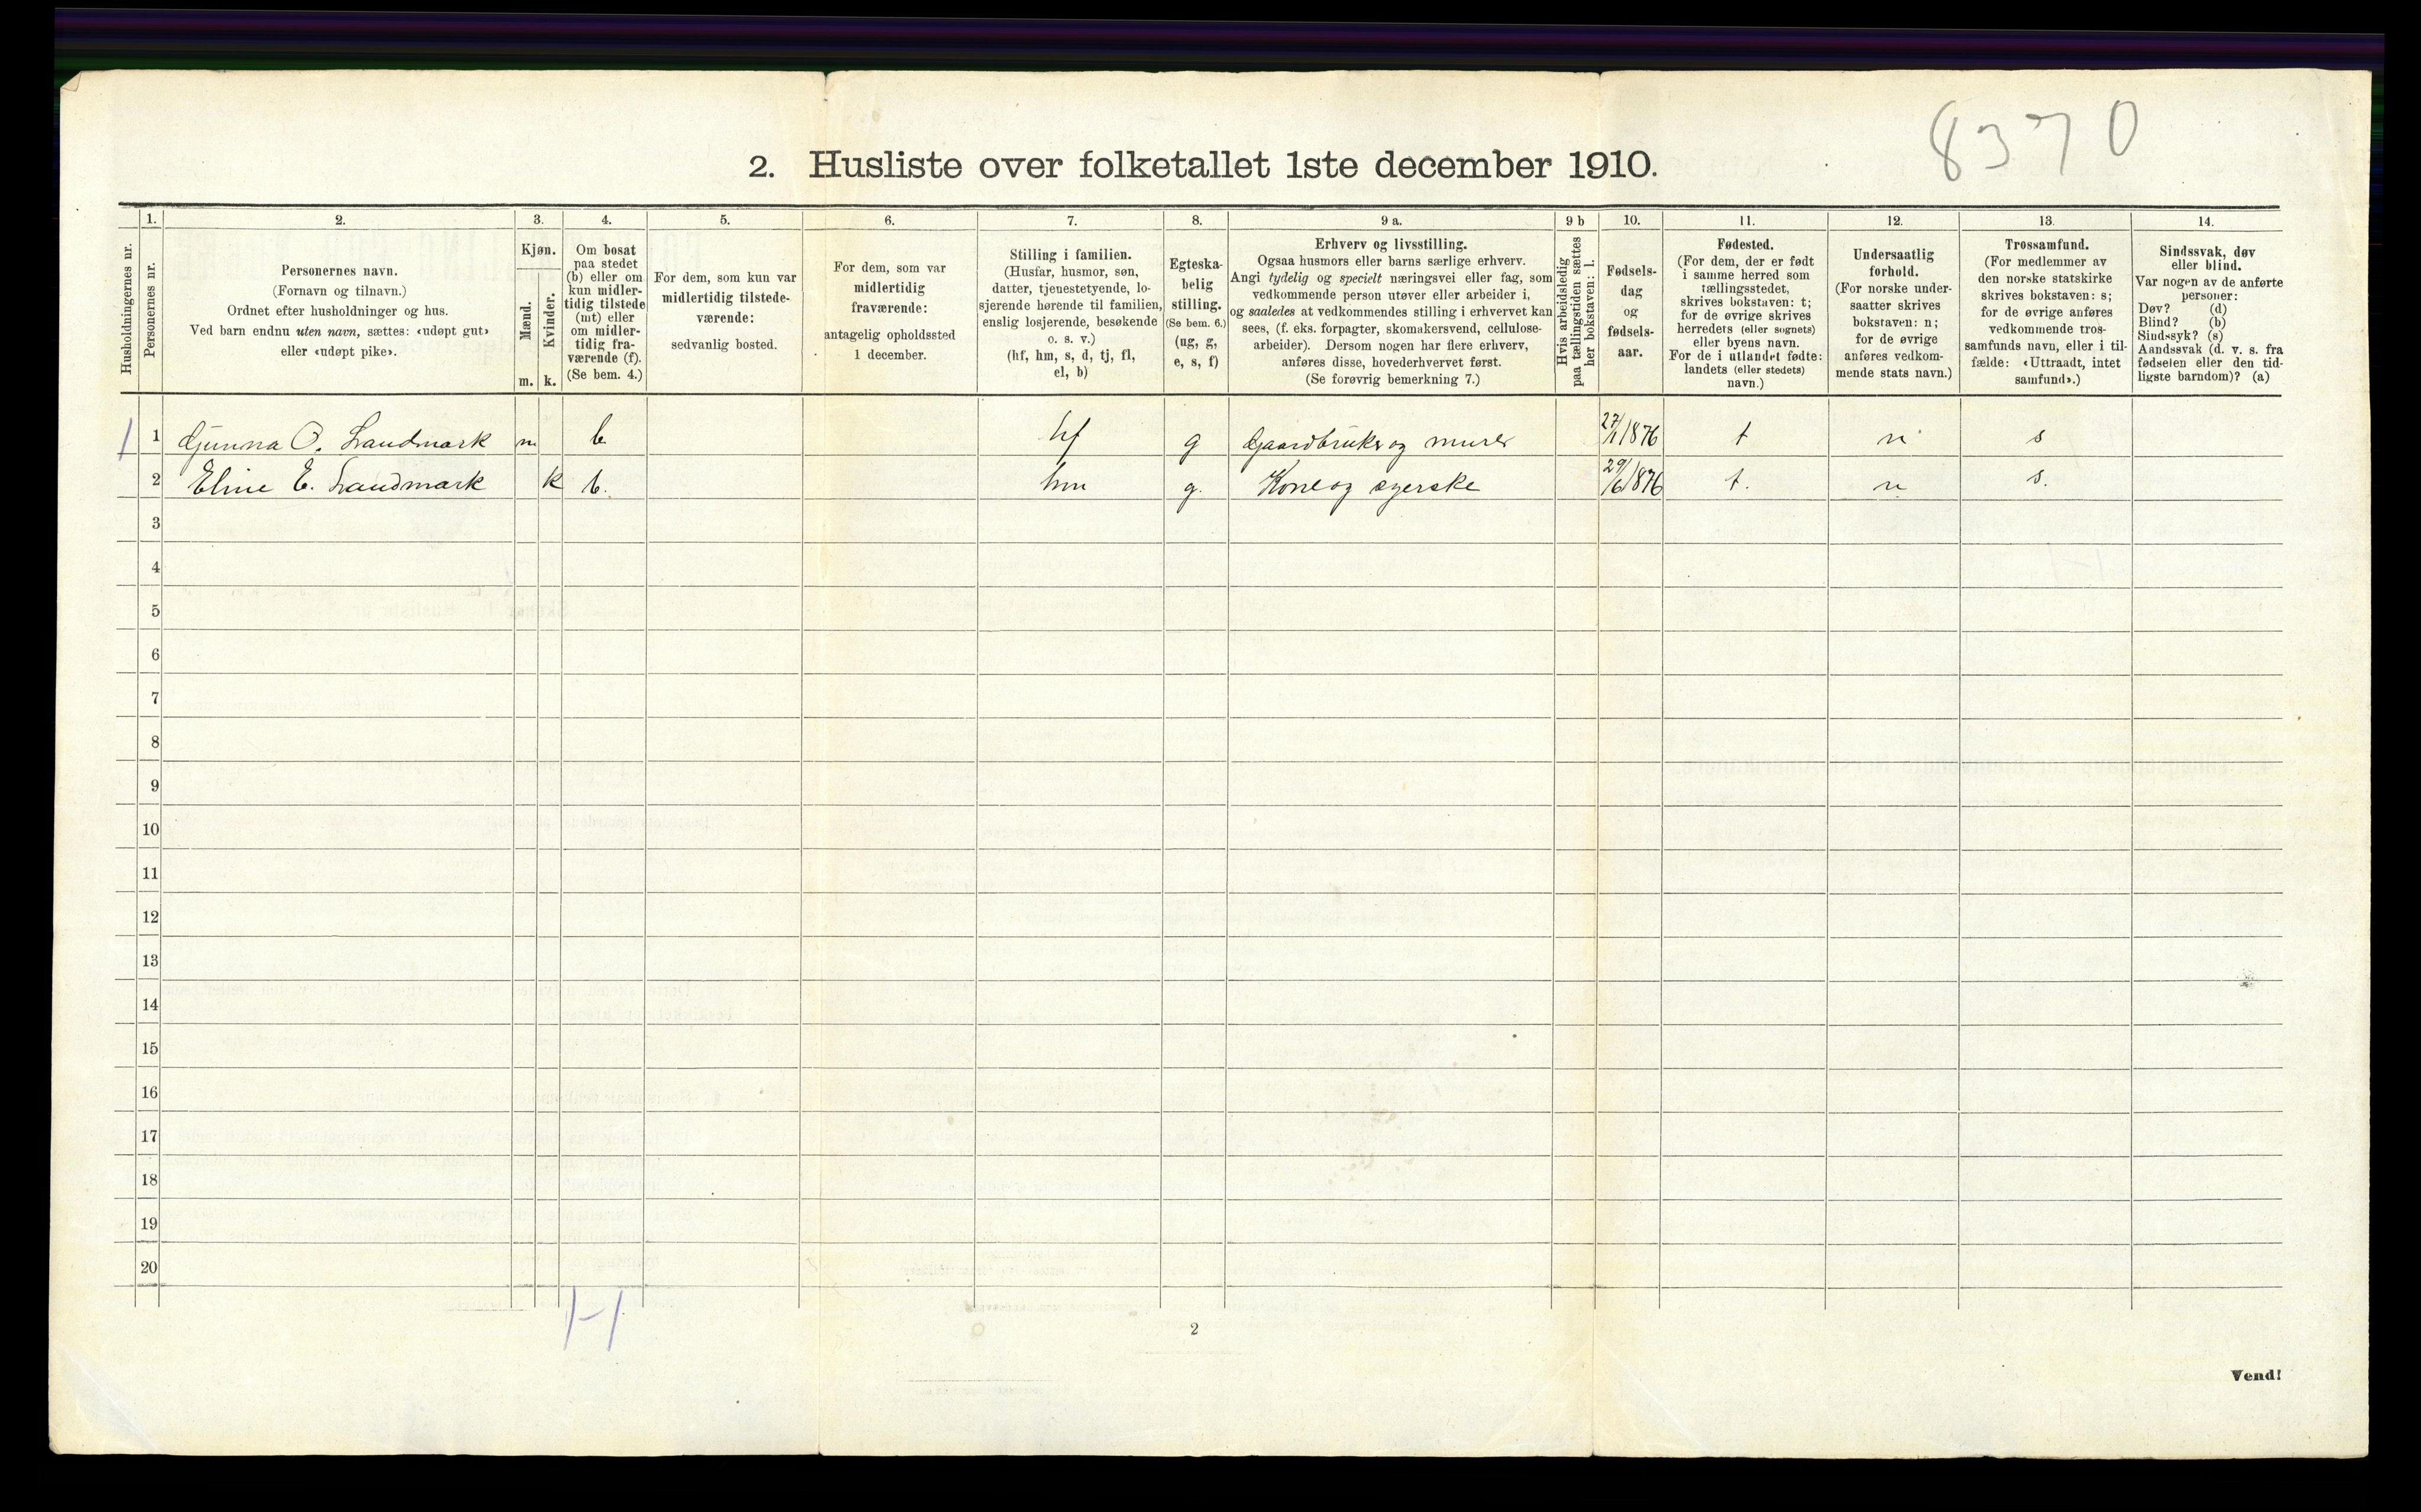 8370
2. Husliste over folketallet 1ste december 1910.
Husholdningernes nr.
1.
Personernes nr.
2.
Personernes navn.
(Fornavn og tilnavn.)
Ordnet efter husholdninger og hus.
Ved barn endnu uten navn, sættes: «udøpt gut»
eller «udøpt pike».
3.
Kjøn.
Mænd.
Kvinder.
m. k.
4.
Om bosat
paa stedet
(b) eller om
kun midler-
tidig tilstede
(mt) eller
om midler-
tidig fra-
værende (f).
(Se bem. 4.)
5.
For dem, som kun var
midlertidig tilstede-
værende:
sedvanlig bosted.
6.
For dem, som var
midlertidig
fraværende:
antagelig opholdssted
1 december.
7.
Stilling i familien.
(Husfar, husmor, søn,
datter, tjenestetyende, lo-
sjerende hørende til familien,
enslig losjerende, besøkende
o. s. v.)
(hf, hm, s, d, tj, fl,
el, b)
8.
Egteska-
belig
stilling.
(Se bem. 6.)
(ug, g,
e, s, f)
9 a.
Erhverv og livsstilling.
Ogsaa husmors eller barns særlige erhverv.
Angi tydelig og specielt næringsvei eller fag, som
vedkommende person utøver eller arbeider i,
og saaledes at vedkommendes stilling i erhvervet kan
sees, (f. eks. forpagter, skomakersvend, cellulose-
arbeider). Dersom nogen har flere erhverv,
anføres disse, hovederhvervet først.
(Se forøvrig bemerkning 7.)
9 b
Hvis arbeidsledig
paa tællingstiden sættes
her bokstaven: l.
10.
Fødsels-
dag
og
fødsels-
aar.
11.
Fødested.
(For dem, der er født
i samme herred som
tællingsstedet,
skrives bokstaven: t;
for de øvrige skrives
herredets (eller sognets)
eller byens navn.
For de i utlandet fødte:
landets (eller stedets)
navn.)
12.
Undersaatlig
forhold.
(For norske under-
saatter skrives
bokstaven: n;
for de øvrige
anføres vedkom-
mende stats navn.)
13.
Trossamfund.
(For medlemmer av
den norske statskirke
skrives bokstaven: s;
for de øvrige anføres
vedkommende tros-
samfunds navn, eller i til-
fælde: «Uttraadt, intet
samfund».)
14.
Sindssvak, døv
eller blind.
Var nogen av de anførte
personer:
Døv? (d)
Blind? (b)
Sindssyk? (s)
Aandssvak (d. v. s. fra
fødselen eller den tid-
ligste barndom)? (a)
1 1 Gunna O. Landmark m b hf g Gaardbruker og murer 27/11 1876 t n s
2 Eline E. Landmark k b. hm g. Kone og syerske 29/6 1876 t. n s.
3
4
5
6
7
8
9
10
11
12
13
14
15
16
17
18
19
20
1-1
2
Vend!